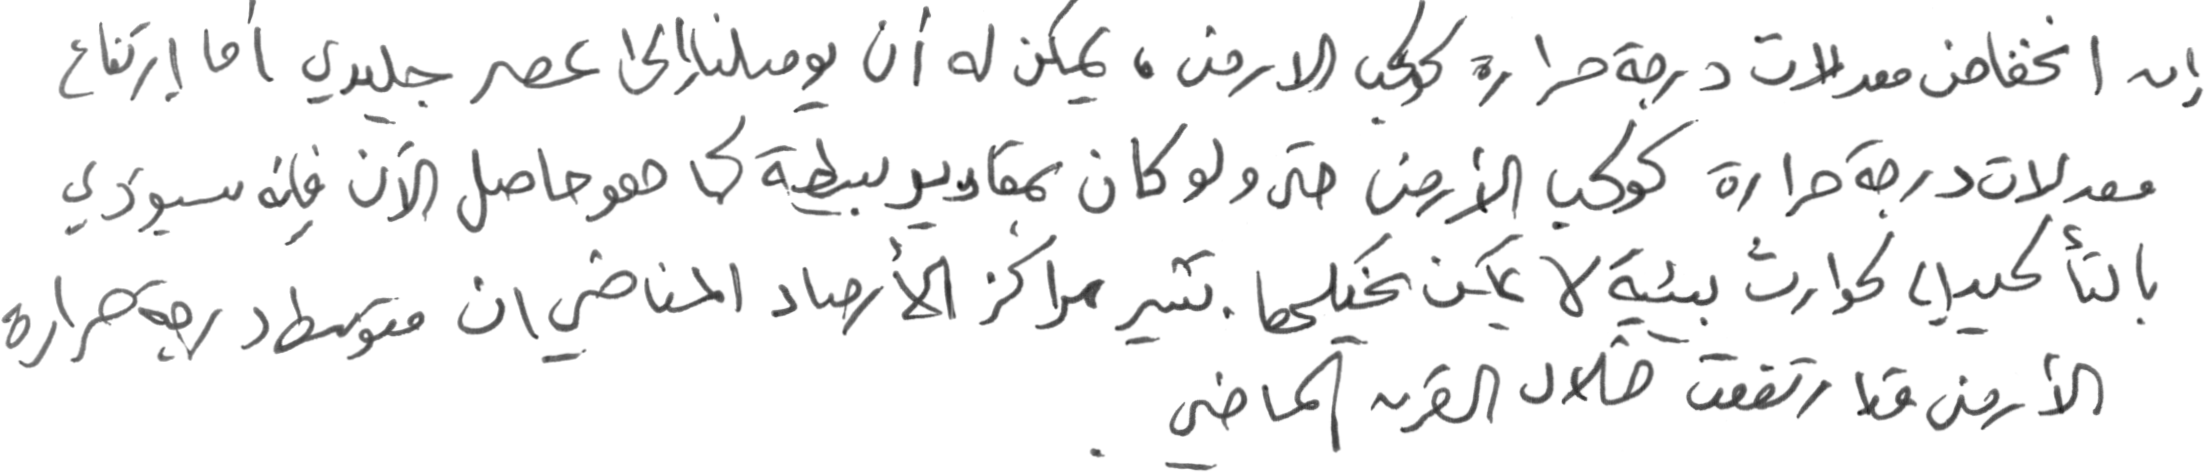 إن انخفاض معدلات درجة حرارة كوكب الارض ، يمكن له أن يوصلنا إلى عصر جليدي أما إرتفاع
معدلات درجة حرارة كوكب الأرض حتى ولو كان بمقادير بسيطة كما هو حاصل الآن فإنه سيؤدي
بالتأكيد إلى كوارث بيئية لا يمكن تخيلها . تشير مراكز الأرصاد المناخي ان متوسط درجة حراره
الأرض قد ارتفعت خلال القرن الماضي .